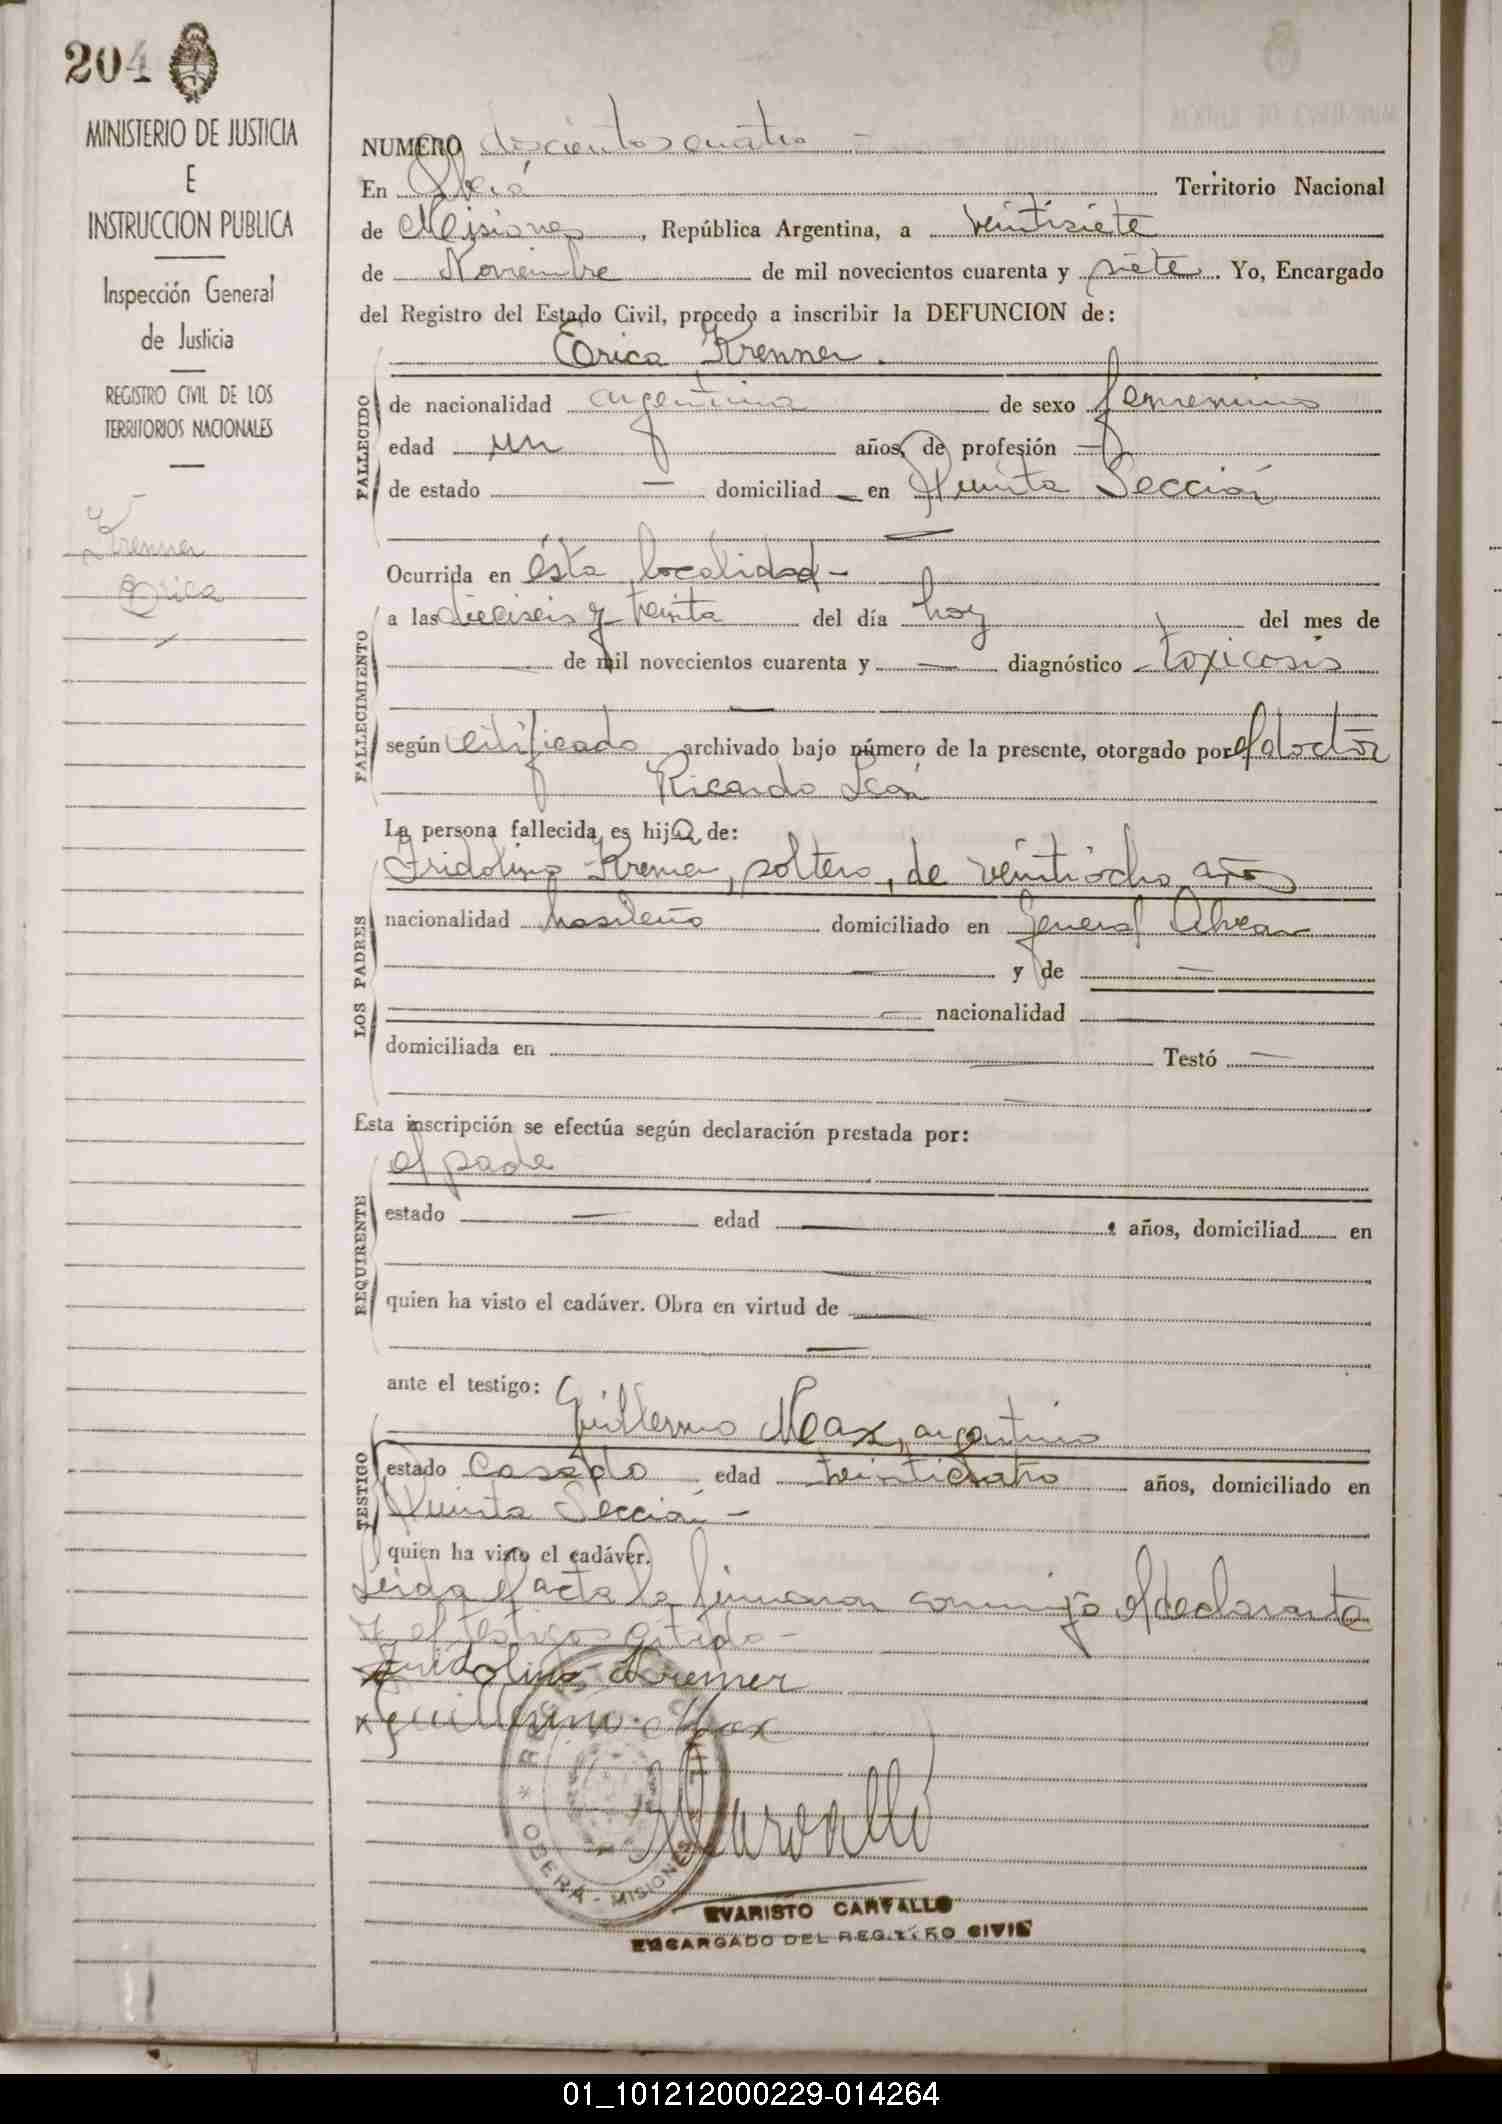 204
MINISTERIO DE JUSTICIA
E
INSTRUCCION PUBLICA
Inspección General
de Justicia
REGISTRO CIVIL DE LOS
TERRITORIOS NACIONALES
Krenner
Erica
NUMERO doscientos cuatro
En Oberá Territorio Nacional
de Misiones, República Argentina, a veintisiete
de Noviembre de mil novecientos cuarenta y siete. Yo, Encargado
del Registro del Estado Civil, procedo a inscribir la DEFUNCION de:
Erica Krenner.
FALLECIDO
de nacionalidad argentina de sexo femenino
edad un años, de profesión —
de estado — domiciliad — en Quinta Sección
—
FALLECIMIENTO
Ocurrida en ésta localidad -
a las dieciseis y treinta del día hoy del mes de
— de mil novecientos cuarenta y — diagnóstico toxicosis
—
según certificado archivado bajo número de la presente, otorgado por el doctor
Ricardo León
LOS PADRES
La persona fallecida es hija de:
Fridolino Kremer, soltero, de veintiocho años
nacionalidad brasileño domiciliado en General Alvear
— y de —
— nacionalidad —
domiciliada en — Testó —
—
Esta inscripción se efectúa según declaración prestada por:
REQUIRENTE
el padre
estado — edad — años, domiciliad en
—
quien ha visto el cadáver. Obra en virtud de —
—
TESTIGO
ante el testigo:
Guillermo Max, argentino
estado casado edad veinticuatro años, domiciliado en
Quinta Sección -
quien ha visto el cadáver.
Leida el acta la firmaron conmigo el declarante
y el testigo citado -
Fridolino Kremer
x Guillermo Max
Carvallo
OBERÁ - MISIONES
EVARISTO CARVALLO
ENCARGADO DEL REGISTRO CIVIL
01_101212000229-014264